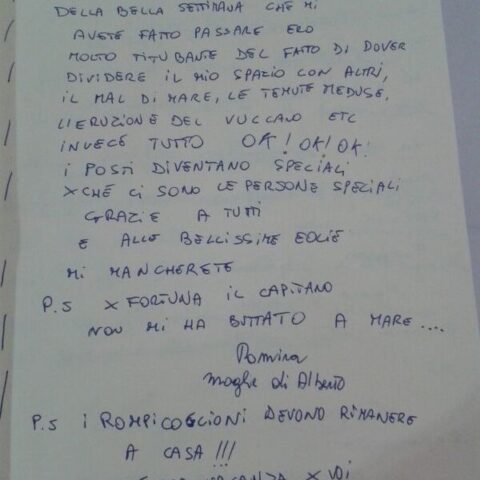 DELLA BELLA SETTIMANA CHE MI
AVETE FATTO PASSARE ERO
MOLTO TITUBANTE DEL FATTO DI DOVER
DIVIDERE IL MIO SPAZIO CON ALTRI,
IL MAL DI MARE, LE TEMUTE MEDUSE,
L'ERUZIONE DEL VUCCAIO ETC
INVECE TUTTO OK! OK! OK!
I POSTI DIVENTANO SPECIALI
XCHÉ CI SONO LE PERSONE SPEZIALI
GRAZIE A TUTTI
E ALLE BELLISSIME EOLIE
MI MANCHERETE
P.S X FORTUNA IL CAPITANO
NON MI HA BUTTATO A MARE....
Romina
moglie di Alberto
P.S I ROMPICOGLIONI DEVONO RIMANERE
A CASA!!!
VACANZA X VOI